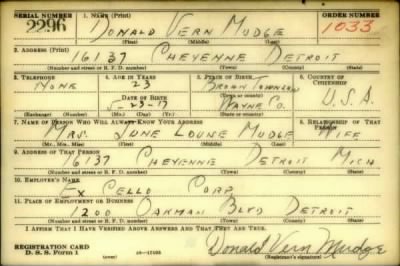 SERIAL NUMBER 1. NAME (Print) ORDER NUMBER
2296 DONALD VERN MUDGE 1033
(First) (Middle) (Last)
2. ADDRESS (Print)
16137 CHEYENNE DETROIT
(Number and street or R. F. D. number) (Town) (County) (State)
3. TELEPHONE 4. AGE IN YEARS 5. PLACE OF BIRTH 6. COUNTRY OF CITIZENSHIP
NONE 23 BROWN TOWNSHIP
DATE OF BIRTH (Town or county)
5-23-17 WAYNE CO. U.S.A.
(Exchange) (Number) (Mo.) (Day) (Yr.) (State or country)
7. NAME OF PERSON WHO WILL ALWAYS KNOW YOUR ADDRESS 8. RELATIONSHIP OF THAT PERSON
MRS. JUNE LOUISE MUDGE WIFE
(Mr., Mrs., Miss) (First) (Middle) (Last)
9. ADDRESS OF THAT PERSON
16137 CHEYENNE DETROIT MICH
(Number and street or R. F. D. number) (Town) (County) (State)
10. EMPLOYER'S NAME
EX CELLO CORP.
11. PLACE OF EMPLOYMENT OR BUSINESS
1200 OAKMAN BLVD DETROIT
(Number and street or R. F. D. number) (Town) (County) (State)
I AFFIRM THAT I HAVE VERIFIED ABOVE ANSWERS AND THAT THEY ARE TRUE.
REGISTRATION CARD
D. S. S. Form 1 Donald Vern Mudge
(Registrant's signature)